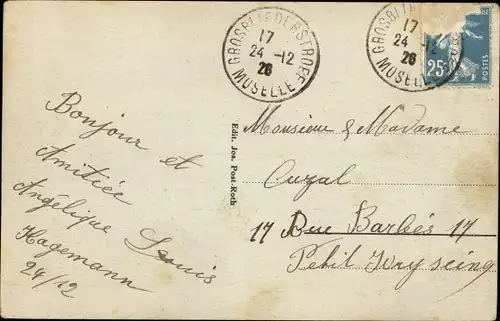 GROSBLIEDERSTROFF
17
24 -12
26
MOSELLE
17
24 -12
26
25c
POSTES
Edit. Jos. Post-Roth
Bonjour et
Amitiée
Angélique Louis
Hagemann
24/12
Monsieur & Madame
Cuzal
17 Rue Barbés 17
Petit